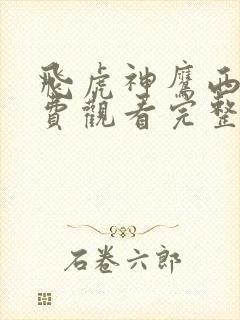 飛虎神鷹西
費觀看完整
石卷六郎